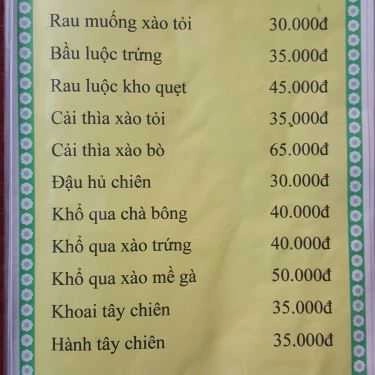 Rau muống xào tỏi 30.000đ
Bầu luộc trứng 35.000đ
Rau luộc kho quẹt 45.000đ
Cải thìa xào tỏi 35.000đ
Cải thìa xào bò 65.000đ
Đậu hủ chiên 30.000đ
Khổ qua chà bông 40.000đ
Khổ qua xào trứng 40.000đ
Khổ qua xào mề gà 50.000đ
Khoai tây chiên 35.000đ
Hành tây chiên 35.000đ